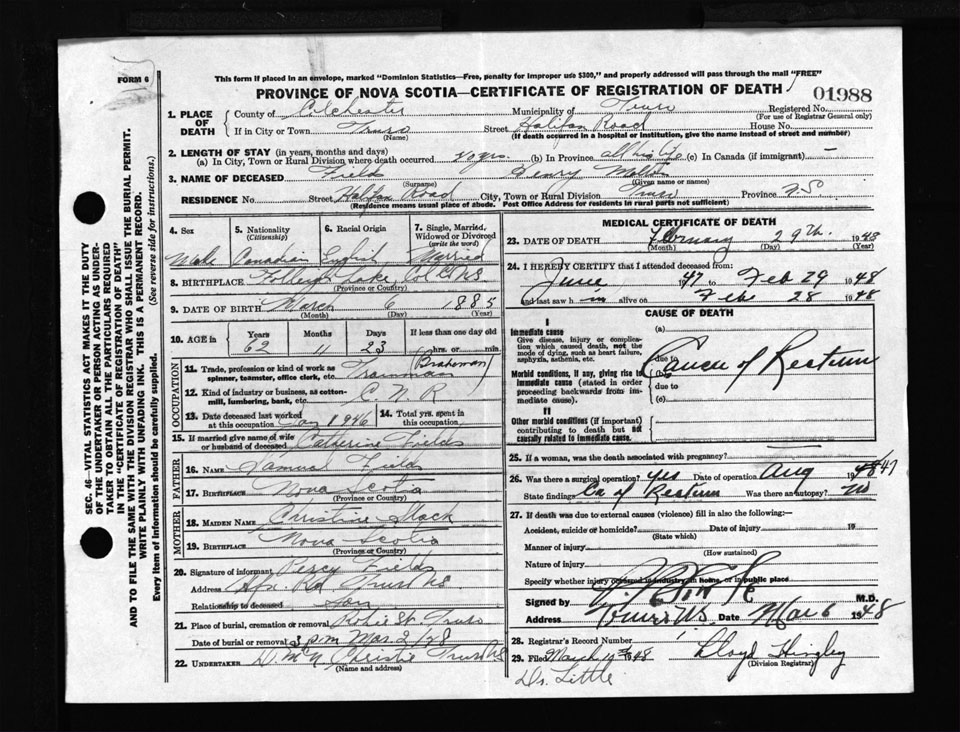 FORM 6
This form if placed in an envelope, marked "Dominion Statistics—Free, penalty for improper use $300," and properly addressed will pass through the mail "FREE"
PROVINCE OF NOVA SCOTIA—CERTIFICATE OF REGISTRATION OF DEATH
01988
1. PLACE OF DEATH
County of Colchester Municipality of Truro Registered No.
(For use of Registrar General only)
If in City or Town Truro Street Halifax Road House No.
(Name) (If death occurred in a hospital or institution, give the name instead of street and number)
2. LENGTH OF STAY (in years, months and days)
(a) In City, Town or Rural Division where death occurred 40 yrs. (b) In Province all his life (c) In Canada (if immigrant) —
3. NAME OF DECEASED Fields Henry
(Surname) (Given name or names)
RESIDENCE No. Street Halifax Road City, Town or Rural Division Truro Province N.S
(Residence means usual place of abode. Post Office Address for residents in rural parts not sufficient)
SEC. 46—VITAL STATISTICS ACT MAKES IT THE DUTY
OF THE UNDERTAKER OR PERSON ACTING AS UNDER-
TAKER TO OBTAIN ALL THE PARTICULARS REQUIRED
IN THE "CERTIFICATE OF REGISTRATION OF DEATH"
AND TO FILE THE SAME WITH THE DIVISION REGISTRAR WHO SHALL ISSUE THE BURIAL PERMIT.
WRITE PLAINLY WITH UNFADING INK. THIS IS A PERMANENT RECORD.
Every item of information should be carefully supplied. (See reverse side for instructions.)
4. Sex Male
5. Nationality (Citizenship) Canadian
6. Racial Origin English
7. Single, Married, Widowed or Divorced (write the word) Married
8. BIRTHPLACE Folleigh Lake, Col. Co NS
(Province or Country)
9. DATE OF BIRTH March 6 1885
(Month) (Day) (Year)
10. AGE in Years 62 Months 11 Days 23 If less than one day old hrs. or min.
OCCUPATION
11. Trade, profession or kind of work as spinner, teamster, office clerk, etc. Trainman (Brakeman)
12. Kind of industry or business, as cotton-mill, lumbering, bank, etc. C.N.R.
13. Date deceased last worked at this occupation 1946
14. Total yrs. spent in this occupation
15. If married give name of wife or husband of deceased Catherine Fields
FATHER
16. Name Samual Fields
17. Birthplace Nova Scotia
(Province or Country)
MOTHER
18. MAIDEN NAME Christine
19. Birthplace Nova Scotia
(Province or Country)
20. Signature of informant Percy Fields
Address Hfx. Rd Truro NS
Relationship to deceased son
21. Place of burial, cremation or removal Robie St. Truro
Date of burial or removal 3 pm Mar. 2/48
22. UNDERTAKER Christie Truro NS
(Name and address)
MEDICAL CERTIFICATE OF DEATH
23. DATE OF DEATH February 29th 1948
(Month) (Day)
24. I HEREBY CERTIFY that I attended deceased from:
June 1947 to Feb 29 1948
and last saw him alive on Feb 28 1948
CAUSE OF DEATH
I
Immediate cause
Give disease, injury or complication which caused death, not the mode of dying, such as heart failure, asphyxia, asthenia, etc.
(a)
due to
Cancer of Rectum
Morbid conditions, if any, giving rise to immediate cause (stated in order proceeding backwards from immediate cause).
(b)
due to
(c)
II
Other morbid conditions (if important) contributing to death but not causally related to immediate cause.
25. If a woman, was the death associated with pregnancy?
26. Was there a surgical operation? yes Date of operation Aug 1947
State findings Ca of Rectum Was there an autopsy? no
27. If death was due to external causes (violence) fill in also the following:
Accident, suicide or homicide? Date of injury 19
(State which)
Manner of injury
(How sustained)
Nature of injury
Specify whether injury occurred in industry, in home, or in public place
Signed by M.D.
Address Truro N.S. Date Mar 6 1948
28. Registrar's Record Number
29. Filed March 1948 Lloyd Hingley
(Division Registrar)
Dr. Little